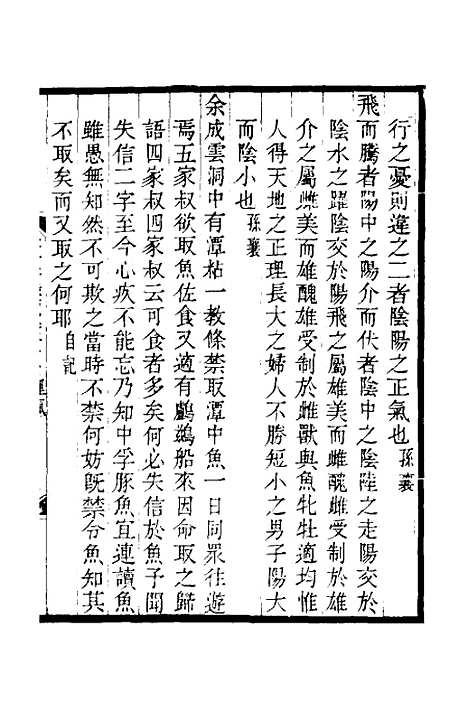 行之憂則違之二者陰陽之正氣也孫襄
飛而騰者陽中之陽介而伏者陰中之陰陸之走陽交於
陰水之躍陰交於陽飛之屬雄美而雌醜雌受制於雄
介之屬雌美而雄醜雄受制於雌獸與魚牝牡適均惟
人得天地之正理長大之婦人不勝短小之男子陽大
而陰小也孫襄
余成雲洞中有潭枯一教條禁取潭中魚一日同眾往遊
焉五家叔欲取魚佐食又適有鸕鷀船來因命取之歸
語四家叔四家叔云可食者多矣何必失信於魚予聞
失信二字至今心疚不能忘乃知中孚豚魚宜連讀魚
雖愚無知然不可欺之當時不禁何妨旣禁令魚知其
不取矣而又取之何耶自記